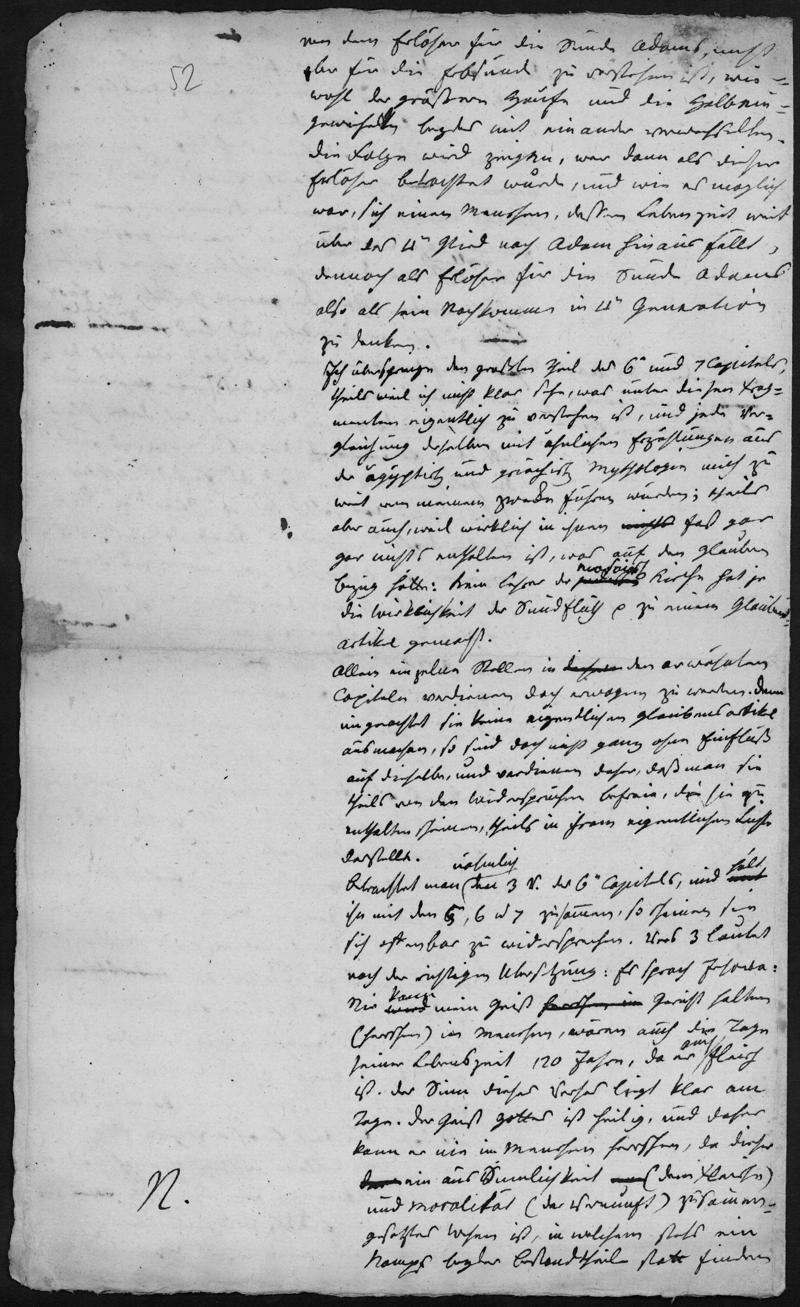 52
von dem Erlöser für die Sünde Adams, nicht
aber für die Erbsünde zu verstehen ist, wie=
wohl der größere Haufe und die Halbein=
geweihten beydes mit einander verwechselten.
Die Folge wird zeigen, wer dann als dieser
Erlöser betrachtet wurde, und wie es möglich
war, sich einen Menschen, dessen Lebenszeit weit
über das 4te Glied nach Adam hinaus fällt,
dennoch als Erlöser für die Sünde Adams
also als sein Nachkomme in 4ter Generation
zu denken.
Ich überspringe den größten Theil des 6n und 7 Capitels,
theils weil ich nicht klar sehe, was unter diesen Frag=
menten eigentlich zu verstehen ist, und jede Ver=
gleichung derselben mit ähnlichen Erzählungen aus
der ägyptisch und griechisch Mythologie mich zu
weit von meinem Zwecke führen würden; theils
aber auch, weil wirklich in ihnen nichts fast gar
gar nichts enthalten ist, was auf den Glauben
bezug hätte: Kein Lehrer der mosaisch Kirche hat je
die Wirklichkeit der Sündfluth zu einem Glaubens=
artikel gemacht.
Allein einzelne Stellen in diesen den erwähnten
Capiteln verdienen doch erwogen zu werden. Denn
ungeachtet sie keine eigentlichen Glaubensartikel
ausmachen, so sind doch nicht ganz ohne Einfluß
auf dieselbe, und verdienen daher, daß man sie
theils von den Widersprüchen befreie, die sie zu
enthalten scheinen, theils in ihrem eigentlichen Lichte
darstelle.
Betrachtet man nähmlich den 3 V. des 6n Capitels, und hält
ihn mit den 5, 6 u 7 zusammen, so scheinen sie
sich offenbar zu widersprechen. Vers 3 lautet
nach der richtigen Übersetzung: Es sprach Jehova:
Nie kann mein Geist herrschen im Gericht halten
(herrschen) im Menschen, wären auch die Tage
seiner Lebenszeit 120 Jahre, da er auch Fleisch
ist. Der Sinn dieses Verses liegt klar am
Tage. Der Geist Gottes ist heilig, und daher
kann er nie im Menschen herrschen, da dieser
ein aus Sinnlichkeit (dem Fleische)
und Moralität (der Vernunft) zusammen=
gesetztes Wesen ist, in welchem stets ein
Kampf beyder Bestandtheile statt finden
N.